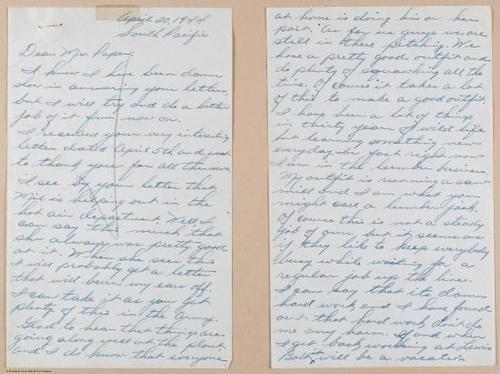 April 20, 1944
South Pacific
Dear Mr. Paper:
I know I have been damn
slow in answering your letters,
but I will try and do a better
job of it from now on.
I received your very interesting
letter dated April 5th and want
to thank you for all the news,
I see by your letter that
is helping out in the
hot air department. Well I
can say this much that
she always was pretty good
at it. When she sees this
I will probably get a letter
that will burn my ears off.
I can take it as you get
plenty of this in the Army.
Glad to hear that things are
going along well at the plant,
and I do know that everyone
at home is doing his or her
part. As for me guys we are
still in there pitching. We
have a pretty good outfit and
do plenty of squawking all the
time. Of course it takes a lot
of this to make a good outfit.
I have been a lot of things
in thirty years of wild life
but learning something new
everyday. In fact right now
I am in the lumber business.
My outfit is running a saw
mill and I am what you
might call a lumber jack.
Of course this is not a steady
job of ours but it seems as
if they like to keep everybody
busy while waiting for a
regular job up the line.
I can say that its damn
hard work, and I have found
out that hard work don't do
me any harm. If and when
I get back, working at Lewis
Bolt will be a vacation